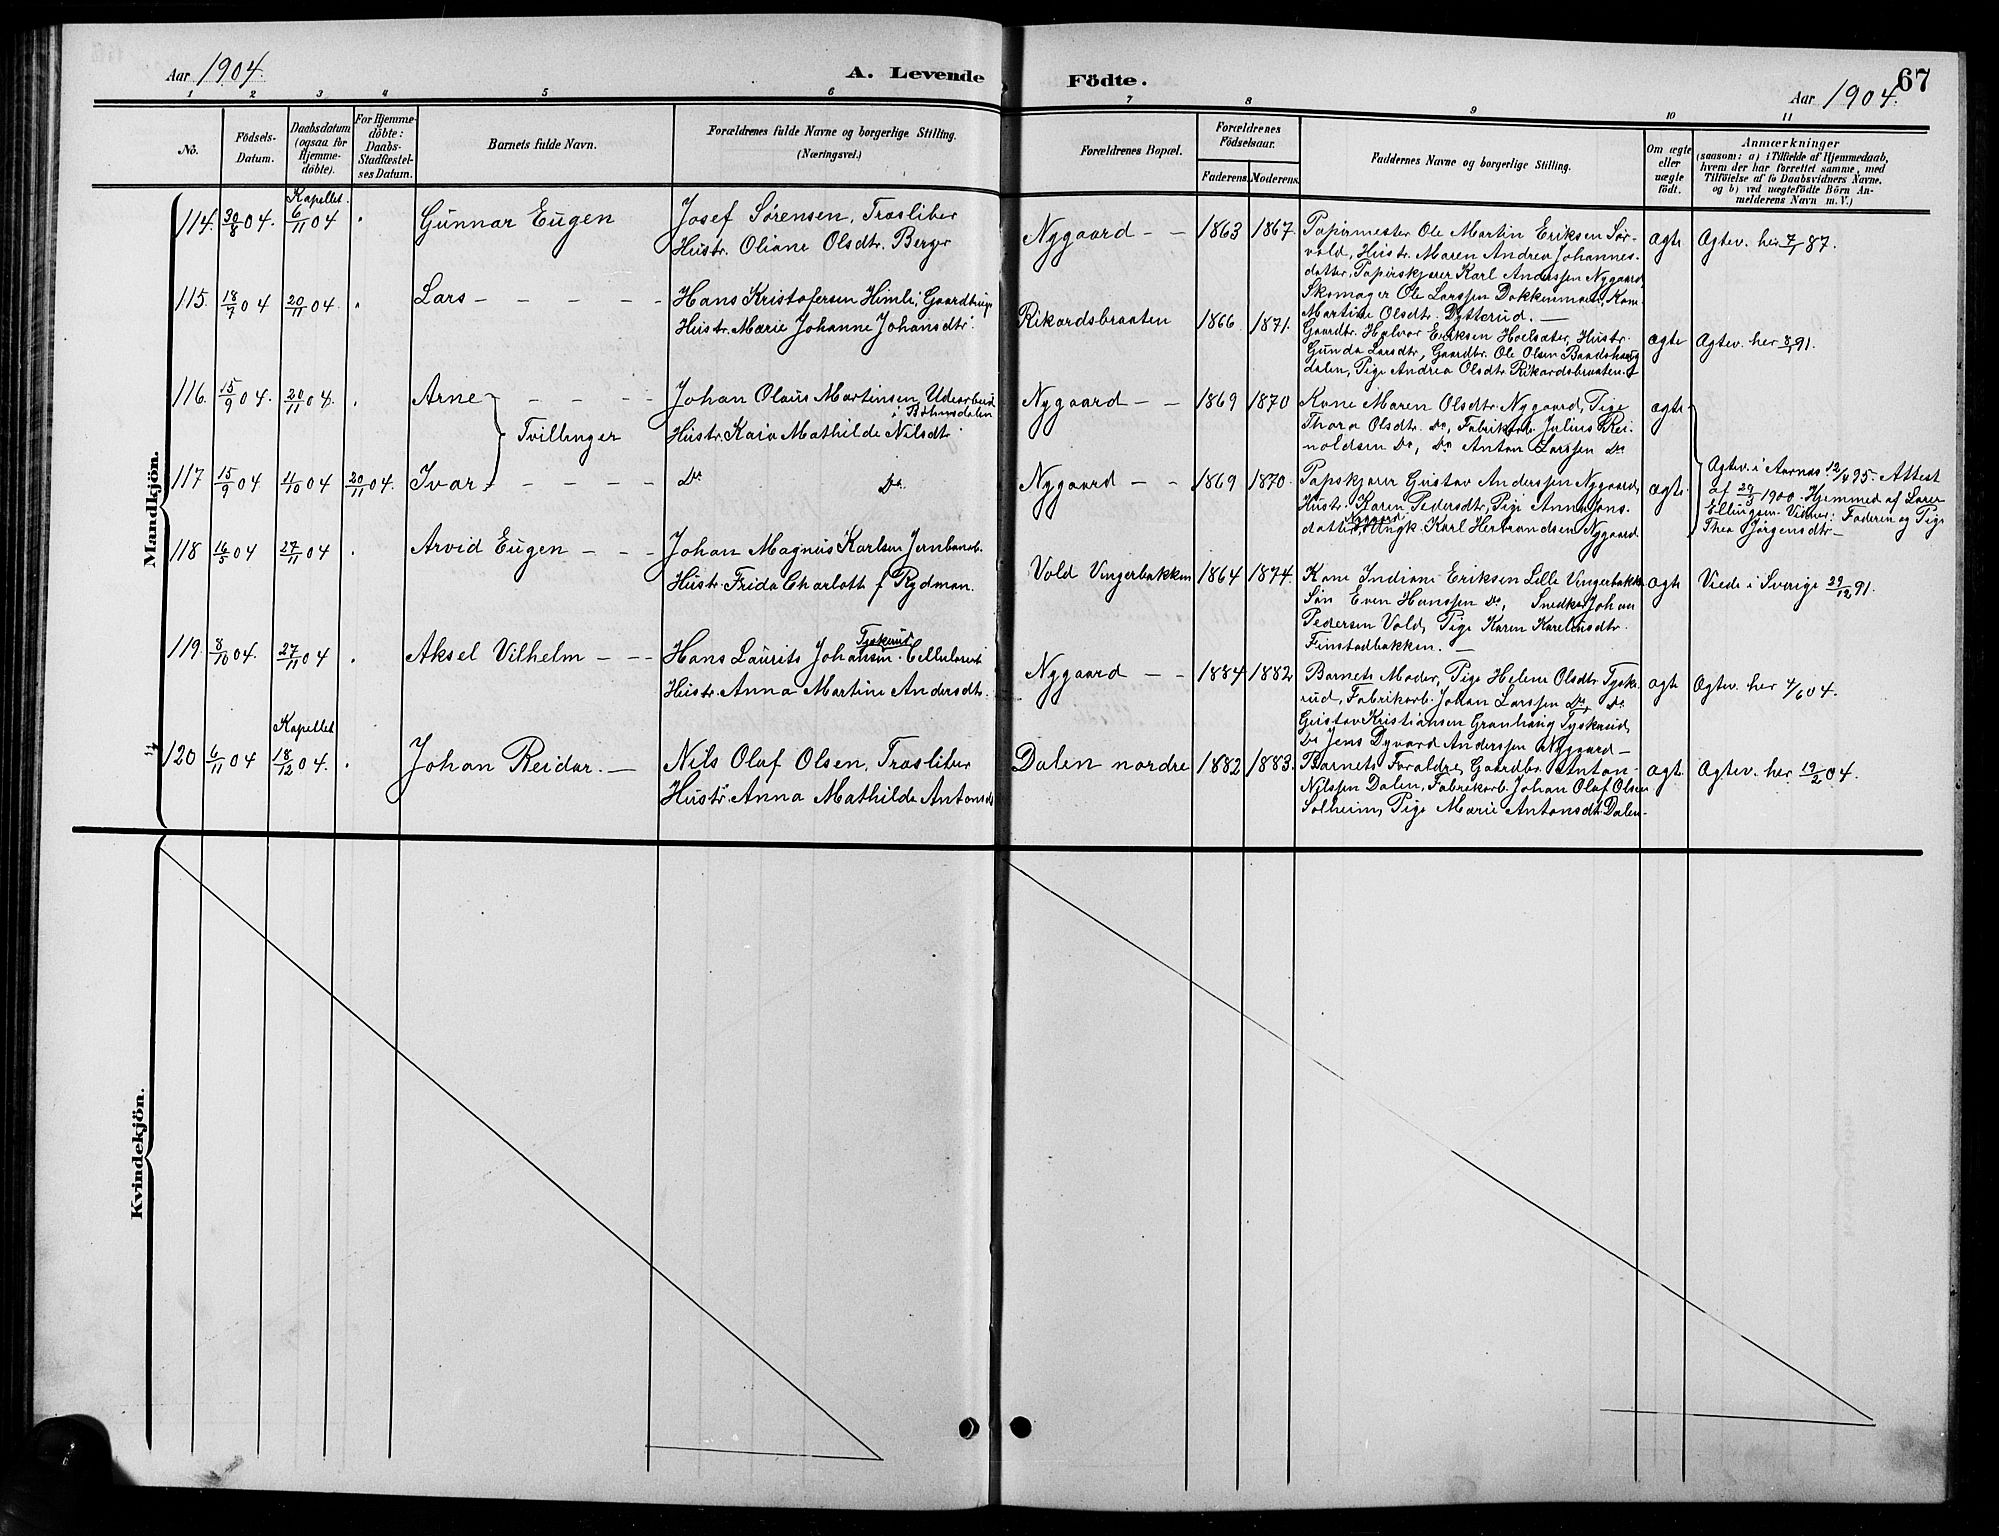 Aar 1904.
A. Levende
Födte.
Aar 1904.
67
1 2 3 4 5 6 7 8 9 10 11
No.
Födsels-
Datum.
Daabsdatum
(ogsaa for
Hjemme-
döbte).
For Hjemme-
döbte:
Daabs-
Stadfæstel-
ses Datum.
Barnets fulde Navn.
Forældrenes fulde Navne og borgerlige Stilling.
(Næringsvei.)
Forældrenes Bopæl.
Forældrenes
Födselsaar.
Faderens. Moderens.
Faddernes Navne og borgerlige Stilling.
Om ægte
eller
uægte
födt.
Anmærkninger
(saasom: a) i Tilfælde af Hjemmedaab,
hvem der har forrettet samme, med
Tilföielse af to Daabsvidners Navne,
og b) ved uægtefödte Börn An-
melderens Navn m. V.)
Mandkjön.
Kapellet.
114. 30/8 04. 6/11 04 Gunnar Eugen
Josef Sørensen, Træsliber
Hustr. Oliane Olsdtr. Berger
Nygaard — — 1863 1867.
Papirmester Ole Martin Eriksen Sør-
vold, Hustr. Maren Andrea Johannes-
datter, Papirskjærer Karl Anderssen Nygaard,
Skomager Ole Larssen Dokkenmoen, Kone
Martine Olsdtr. Dytterud. —
ægte Ægtev. her 7/87.
115. 18/9 04 20/11 04. Lars — — — — —
Hans Kristofersen Himli, Gaardbruger
Hustr. Marie Johanne Johansdtr.
Rikardsbraaten 1866 1871.
Gaardbr. Halvor Eriksen Hoelsæter, Hustr.
Gunda Larsdtr, Gaardbr. Ole Olsen Baadshaug
dalen, Pige Andrea Olsdtr. Rikardsbraaten.
ægte Ægtev. her 8/91.
116. 15/9 04. 20/11 04. Arne — — — —
Tvillinger
Johan Olaus Martinsen,
i Bøhnsdalen
Hustr. Mathilde Nilsdtr.
Nygaard — — 1869 1870
Kone Maren Olsdtr. Nygaard, Pige
Thora Olsdtr. Do, Fabrikarb. Julius Rei-
noldsen Do, Do Anton Larssen Do
ægte
117 15/9 04 4/10 04 20/11 04. Ivar — — — —
Do Do.
Nygaard — — 1869 1870.
Papskjærer Gustav Anderssen Nygaard,
Hustr. Karen Pedersdtr, Pige Anna Jons-
datter Nygaard, Ungk. Karl Hermandsen Nygaard
ægte.
Ægtev. i Aarnæs 12/4 95. Attest
af 29/3 1900. Hjemmed. af Lærer
Ellingsen. Vidner: Faderen og Pige
Thea Jørgensdtr —
118 16/5 04 27/11 04 Arvid Eugen — — —
Johan Magnus Karlsen Jernbanearb.
Hustr. Frida Charlotte f. Rydman.
Vold Vingerbakken 1864 1874.
Kone Indiane Eriksen Lille Vingerbakke
Søn Even Hanssen Do, Snedker Johan
Pedersen Vold, Pige Karen Kareliusdtr.
Finstadbakken. —
ægte Viede i Sverige 29/12 91.
119. 8/10 04. 27/11 04 Aksel Vilhelm — — —
Tyskerud
Hans Laurits Johansen. Cellulosearb
Hustr. Anna Martine Andersdtr.
Nygaard — — 1884 1882
Barnets Moder, Pige Helene Olsdtr. Tyske-
rud, Fabrikarb. Johan Larssen Do, Do
Gustav Kristiansen Granhaug Tyskerud,
Do Jens Dyvard Anderssen Nygaard —
ægte Ægtev. her 4/6 04.
Kapellet
120 6/11 04 18/12 04. Johan Reidar. —
Nils Olaf Olsen, Træsliber
Hustr. Anna Mathilde Antonsdtr
Dalen nordre 1882 1883.
Barnets Forældre, Gaardbr. Anton
Nilssen Dalen, Fabrikarb. Johan Olaf Olsen
Solheim, Pige Marie Antonsdtr. Dalen —
ægte. Ægtev. her 19/2 04.
Kvindekjön.